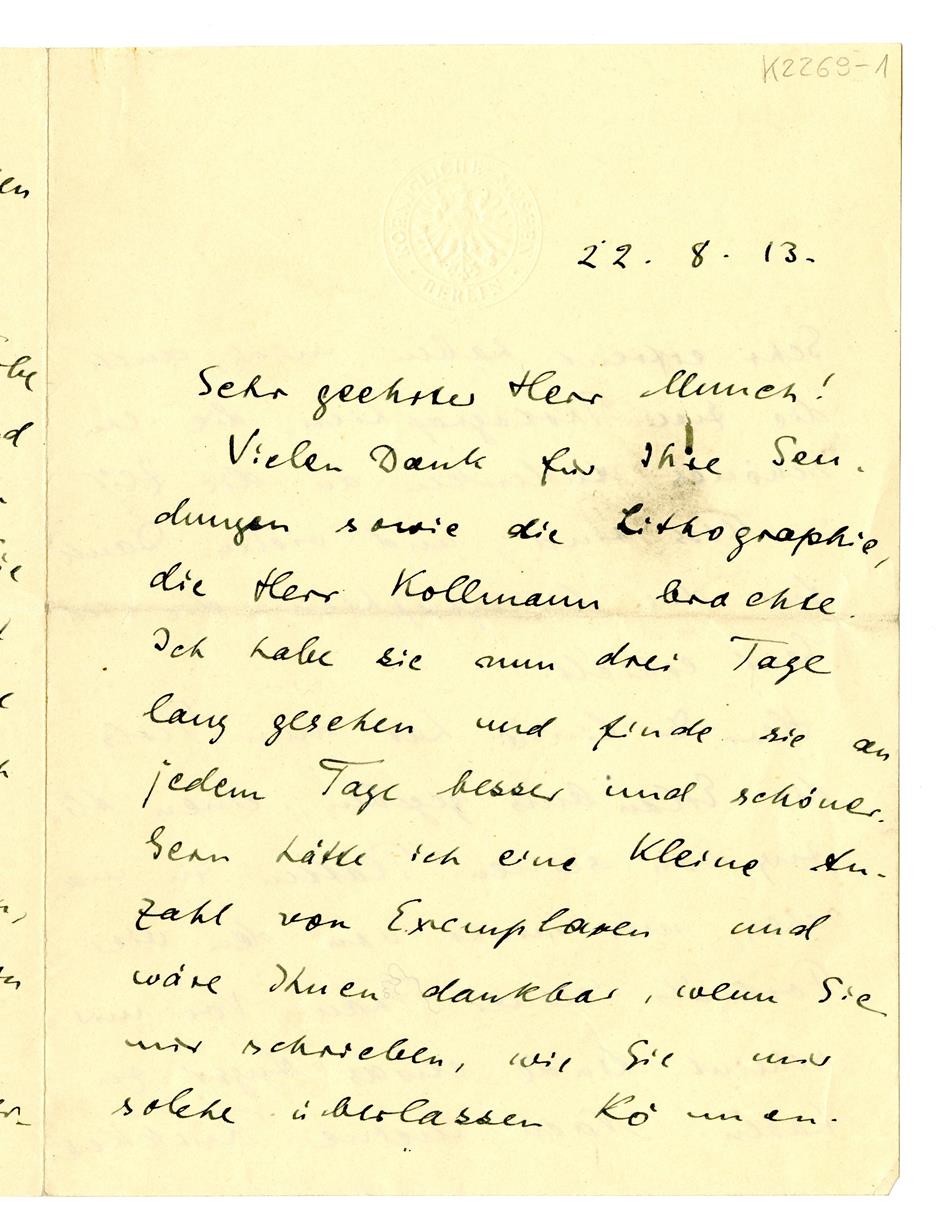 K2269-1
KOENIGLICHE MUSEEN
BERLIN
22. 8. 13.
Sehr geehrter Herr Munch!
Vielen Dank für Ihre Sen-
dungen sowie die Lithographie,
die Herr Kollmann brachte.
Ich habe sie nun drei Tage
lang gesehen und finde sie an
jedem Tage besser und schöner.
Gern hätte ich eine kleine An-
zahl von Exemplaren und
wäre Ihnen dankbar, wenn Sie
mir schrieben, wie Sie mir
solche überlassen können.